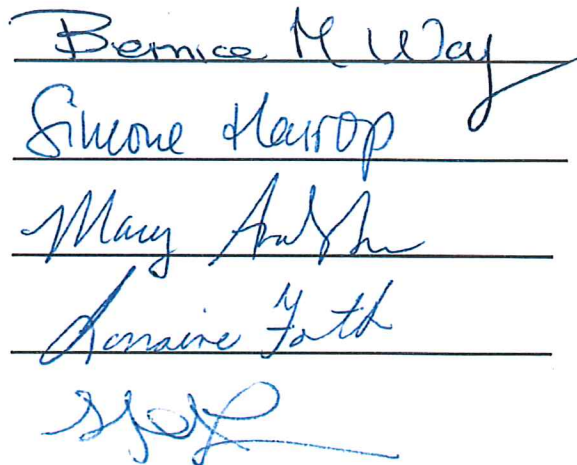 Bernice M Way
Simone Harrop
Mary
Lorraine Forth